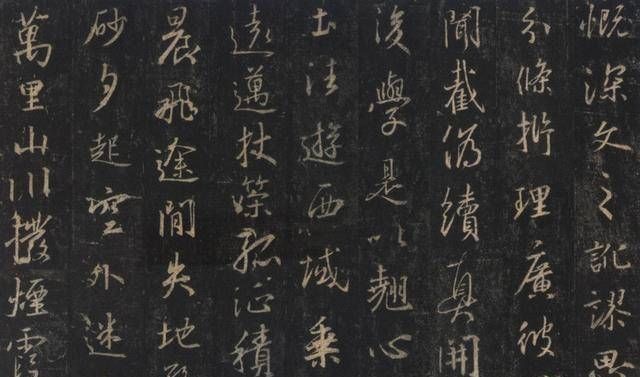 慨深文之訛謬思
分條析理廣彼
聞截偽續真開
後學是以翹心
土往遊西域乘
遠邁杖策孤征積
晨飛途間失地
砂夕起空外迷
萬里山川撥煙霞